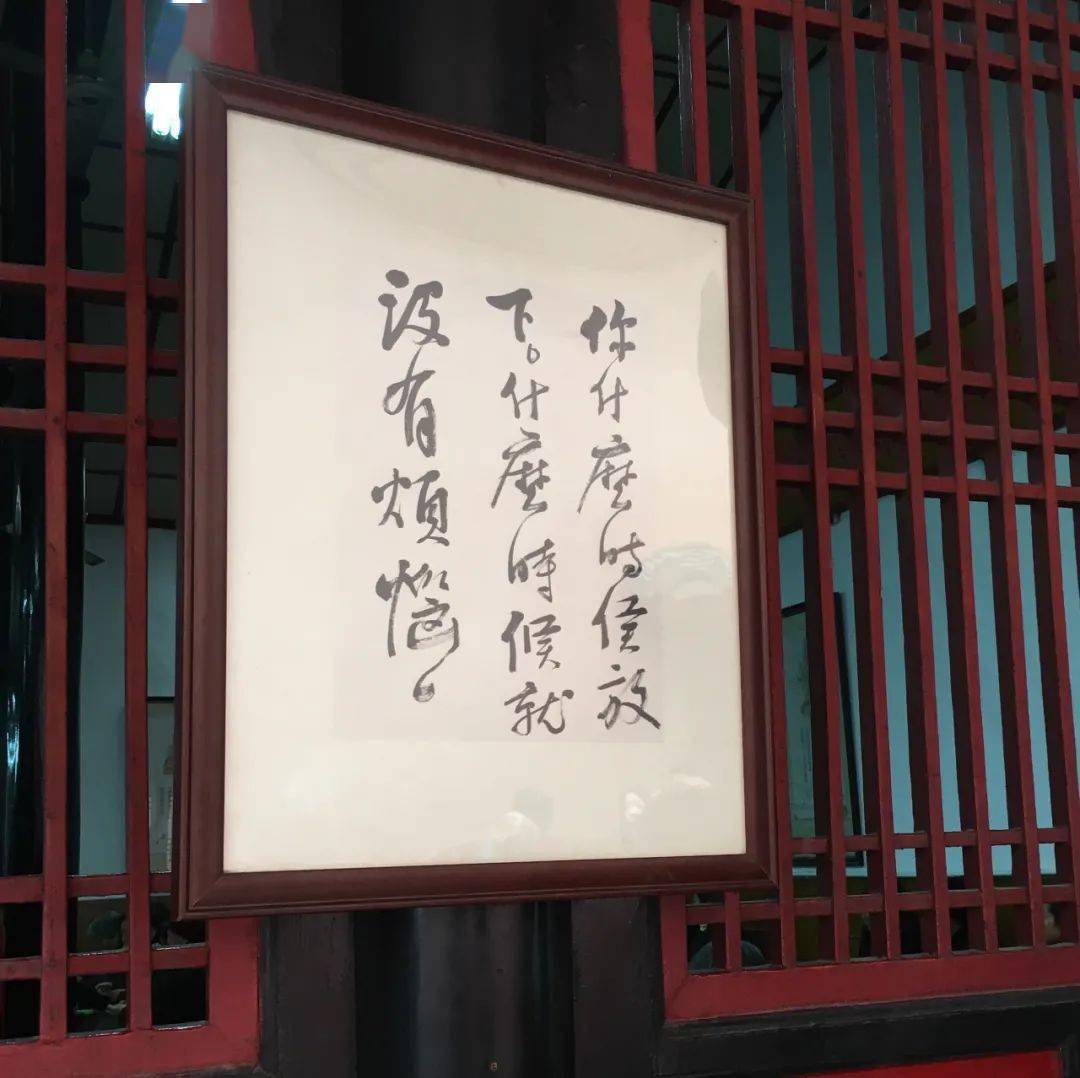 你什麼時候放
下。什麼時候就
沒有煩惱。